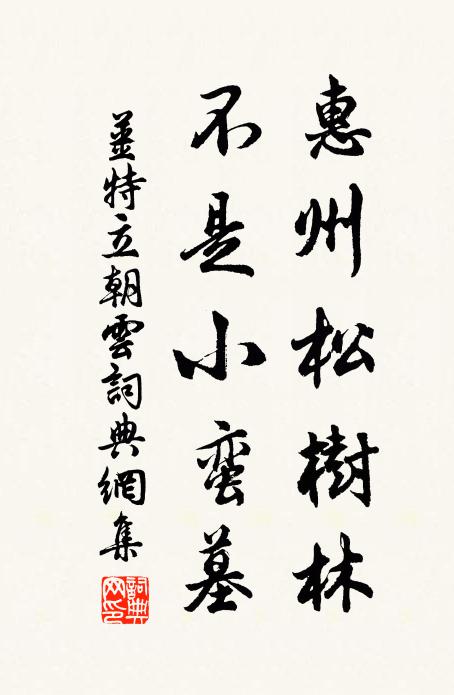 惠州松樹林
不是小蛮墓
姜特立朝雲詞典網集
詞典网印